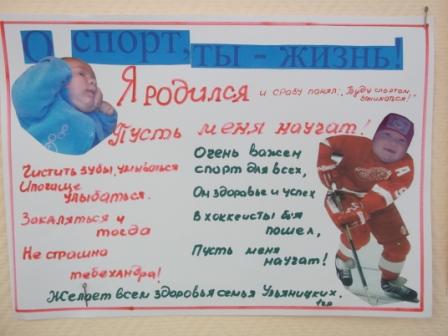 О спорт, ты - жизнь!
Я родился и сразу понял: "Буду спортом заниматься!"
Пусть меня научат!
Чистить зубы, умываться
И почаще
улыбаться.
Закаляться и
тогда
Не страшна
тебе хандра!
Очень важен
спорт для всех,
Он здоровье и успех
В хоккеисты бы я
пошел,
Пусть меня
научат!
Желает всем здоровья семья Ульяницких.